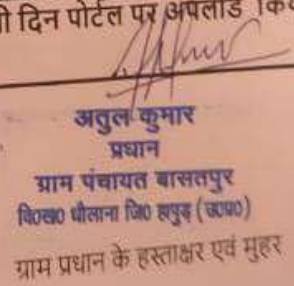 ी दिन पोर्टल पर अपलोड कि
अतुल कुमार
प्रधान
ग्राम पंचायत बासतपुर
वि०ख० धौलाना जि० हापुड़ (उ०प्र०)
ग्राम प्रधान के हस्ताक्षर एवं मुहर